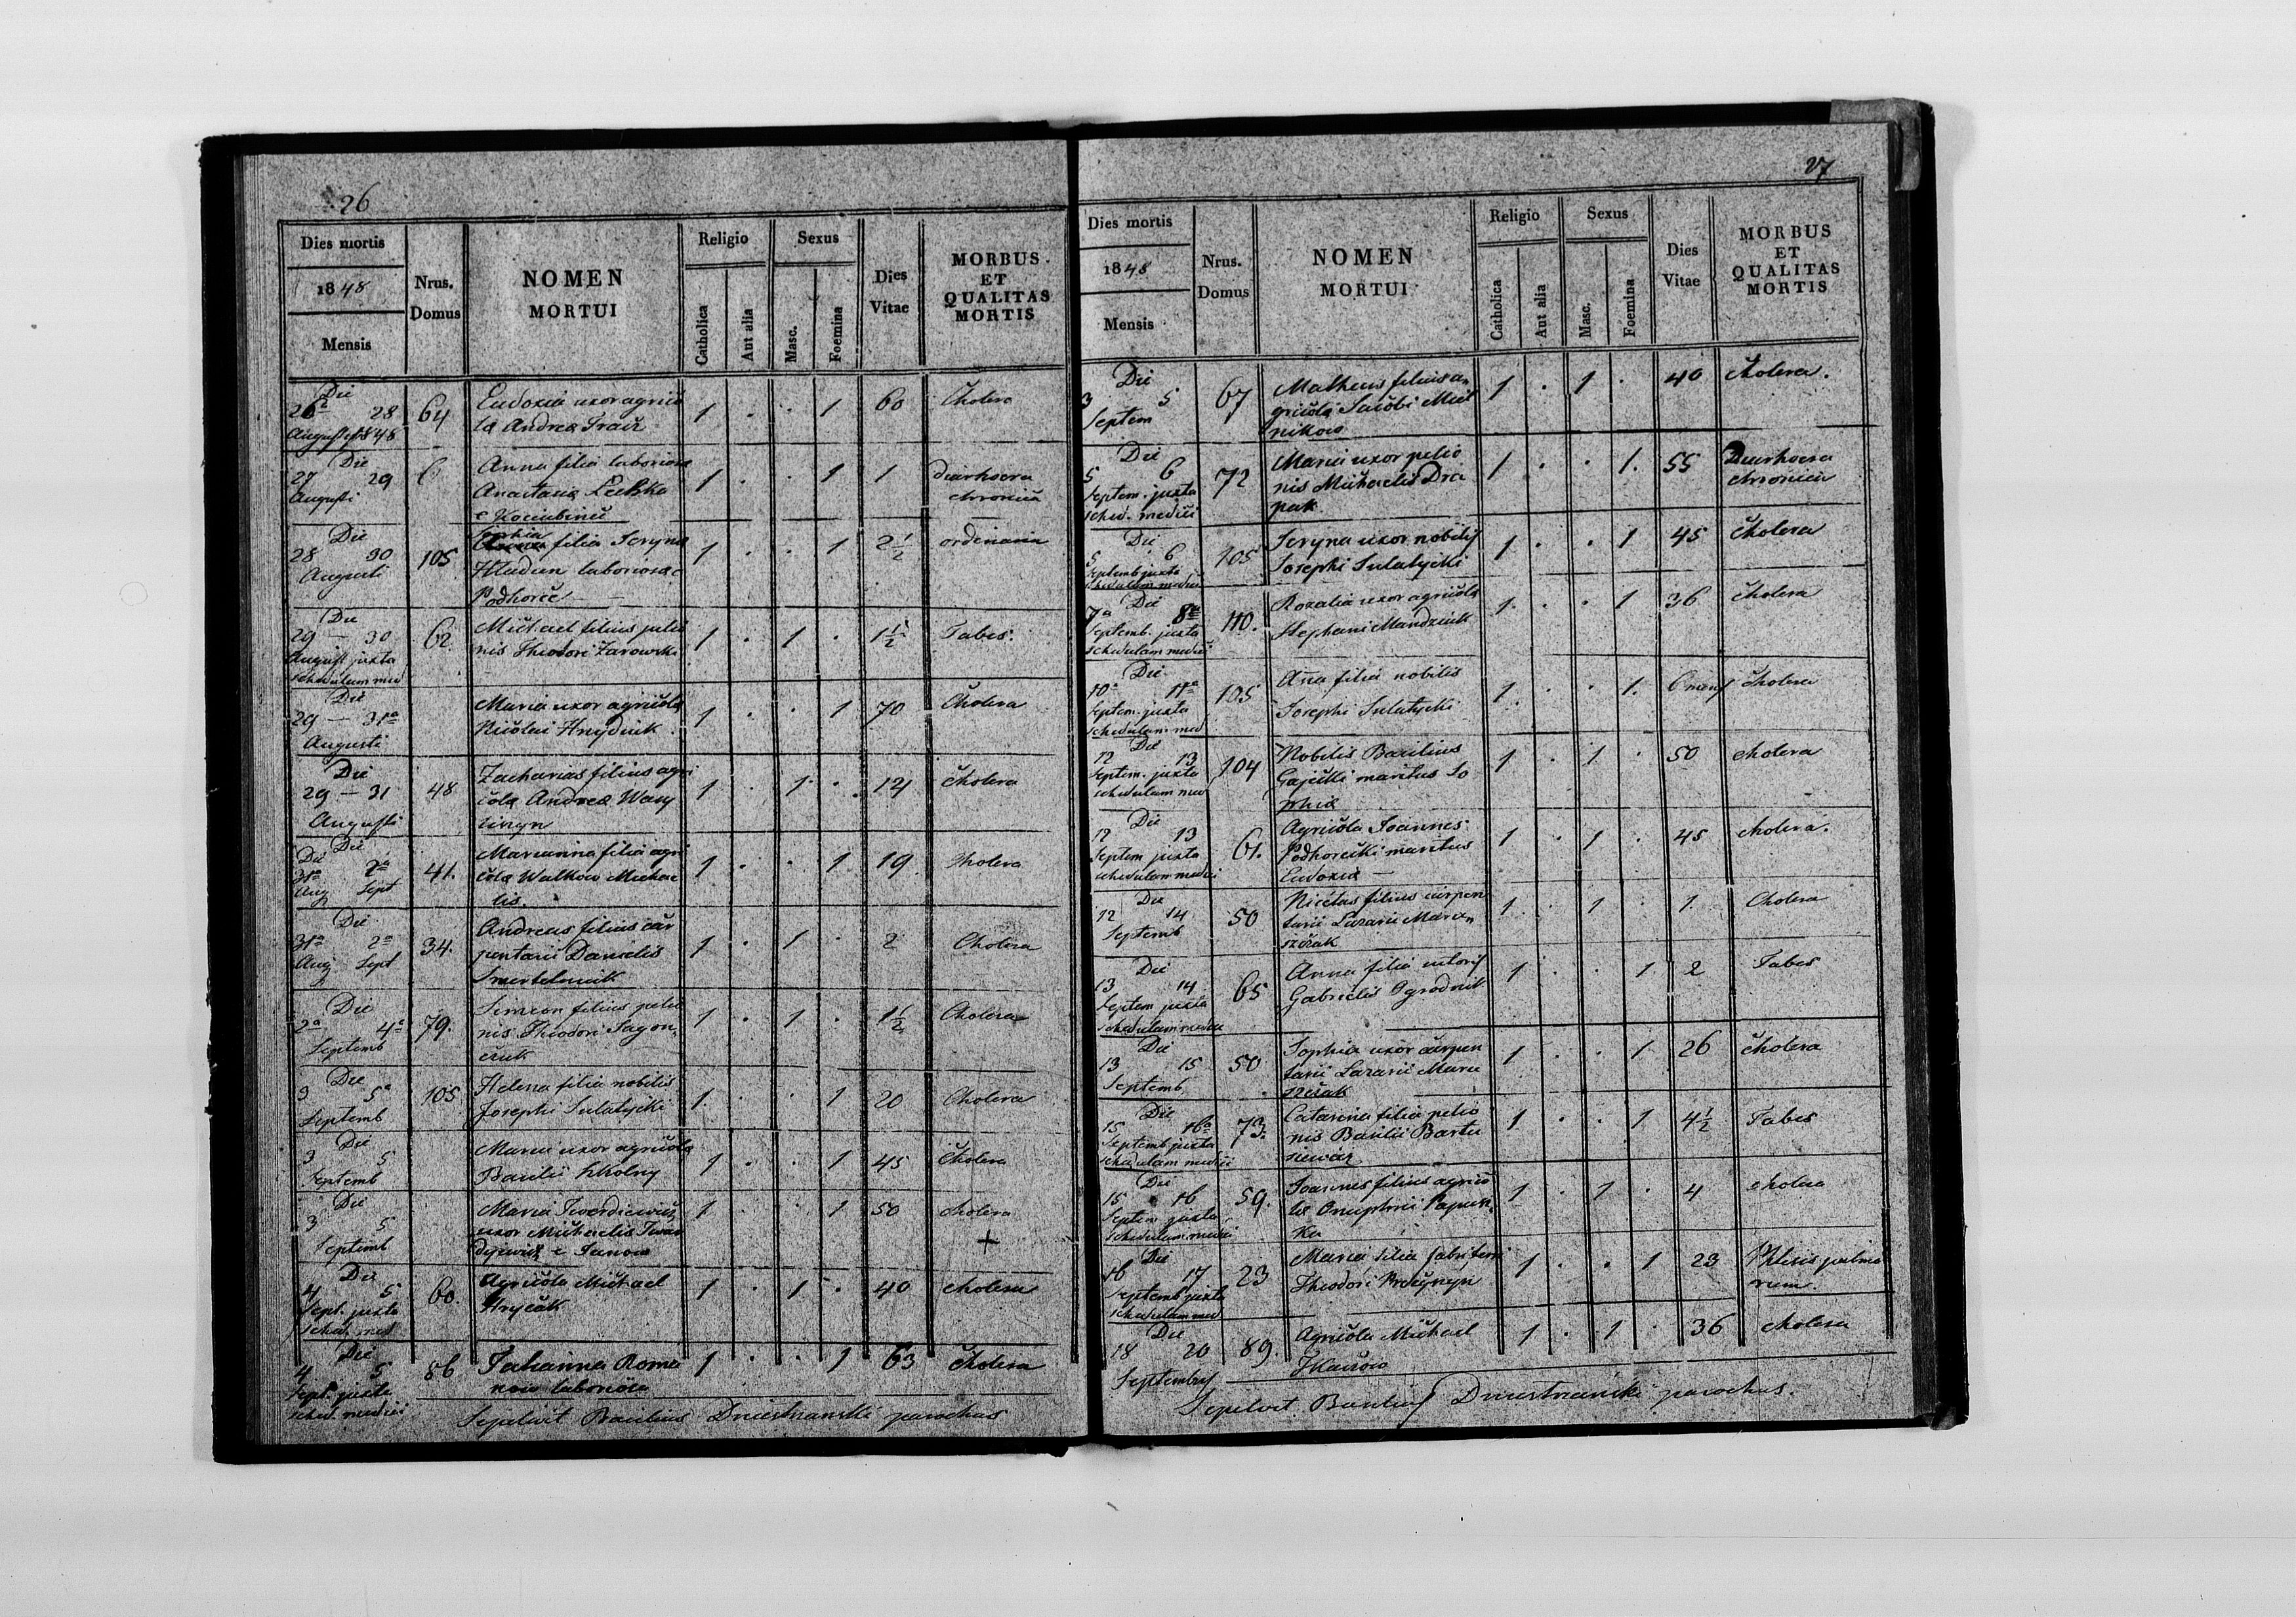 26
Dies mortis
1848
Mensis
Nrus.
Domus
NOMEN
MORTUI
Religio
Catholica
Aut alia
Sexus
Masc.
Foemina
Dies
Vitae
MORBUS
ET
QUALITAS
MORTIS
Die
26 28
Augusti 1848
64
Eudoxia uxor agrico
lae Andreae
1 . . 1 60 Cholera
Die
27 29
Augusti
Anna filia laboriosae
Anastasiae
e Kociubinči
1 . . 1 1 diarrhoea
chronica
Die
28 30
Augusti
105
Sophia
filia Seryna
Hladun laboriosae
Podhorče
1 . . 1 2 1/2 ordinaria
Die
29 — 30
August juxta
schedulam med
62.
Michael filius pelio
nis Theodori Zarowski
1 . 1 . 1 1/2 Tabes.
Die
29 — 31a
Augusti
Maria uxor agricola
Nicolai Hnydiuk
1 . . 1 70 Cholera
Die
29 — 31
Augusti
48
Zacharias filius agri
colae Andreae Wasy
1 . 1 . 14 Cholera
Die
Die
31a 2a
Aug Sept
41.
Marianna filia agri
colae Walkow Michae
lis.
1 . . 1 19. Cholera
Die
31a 2a
Aug Sept
34.
Andreas filius car
pentarii Danielis
Smertelniuk
1 . 1 . 2 Cholera
Die
2a 4a
Septemb
79.
Simeon filius pelio
nis Theodori
1 . 1 . 1 1/2 Cholera
Die
3 5a
Septemb
105
Helena filia nobilis
Josephi Sulatycki
1. . . 1 20 Cholera
Die
3 5
Septemb
Maria uxor agricolae
Basilii Szkolny
1 . . 1 45 Cholera
Die
3 5
Septemb
Maria Twerdiewicz
uxor Michaelis Twer
1 . . 1 50 cholera
+
Die
4 5
Sept. juxta
sched. med
60.
Agricola Michael
Hryčak
1 . 1 . 40 cholera
Die
4 5
Sept. juxta
sched. medici
86
Tatianna Roma
now laboriosa
1 . . 1 63 Cholera
Sepelivit Basilius Dniestrianski parochus
27
Dies mortis
1848
Mensis
Nrus.
Domus
NOMEN
MORTUI
Religio
Catholica
Aut alia
Sexus
Masc.
Foemina
Dies
Vitae
MORBUS
ET
QUALITAS
MORTIS
Die
3 5
Septem
67
Matheus filius a
gricolae Jacobi Miel
nikow
1 . 1 . 40 cholera.
Die
5 6
Septem. juxta
sched. medici
72
Maria uxor pelio
nis Michaelis Dra
pak
1 . . 1. 55 Diarrhoea
chronica
Die
5 6
Septemb juxta
schedulam medici
105
Seryna uxor nobilis
Josephi Sulatycki
1 . . 1 45 cholera
Die
7a 8a
Septemb. juxta
schedulam medici
110.
Rozalia uxor agricola
Stephani Mandziuk
1. . . 1 36 cholera
Die
10a 11a
Septem. juxta
schedulam med
105
Anna filia nobilis
Josephi Sulatycki
1. . . 1. 6 mens Cholera
Die
12 13
Septem. juxta
schedulam med
104
Nobilis Basilius
Gajecki maritus So
phiae
1 . 1 . 50 cholera
Die
12 13
Septem juxta
schedulam medici
61.
Agricola Joannes
Podhorecki maritus
Eudoxiae —
1 . 1 . 45 cholera.
Die
12 14
Septemb
50
Nicetas filius carpen
tarii Lazarii
1 . 1 . 1. Cholera
Die
13 14
Septem juxta
schedulam medici
65
Anna filia
Gabrielis Ogrodnik
1 . . 1 2 Tabes
Die
13 15
Septemb
50
Sophia uxor carpen
tarii Lazarii
1 . . 1 26 cholera
Die
15 16a
Septemb juxta
schedulam medici
73.
Catarina filia pelio
nis Basilii Bartu
siewicz
1 . . 1 4 1/2 Tabes
Die
15 16
Septem juxta
schedulam medici
59.
Joannes filius agrico
lae Onuphrii
1 . 1 . 4 cholera
Die
16 17
Septemb juxta
schedulam med
23
Maria filia
Theodori
1 . . 1 23 Phtisis pulmo
num.
Die
18 20
Septembris
89.
Agricola Michael
1 . 1 . 36 cholera
Sepelivit Basilius Dniestrianski parochus.